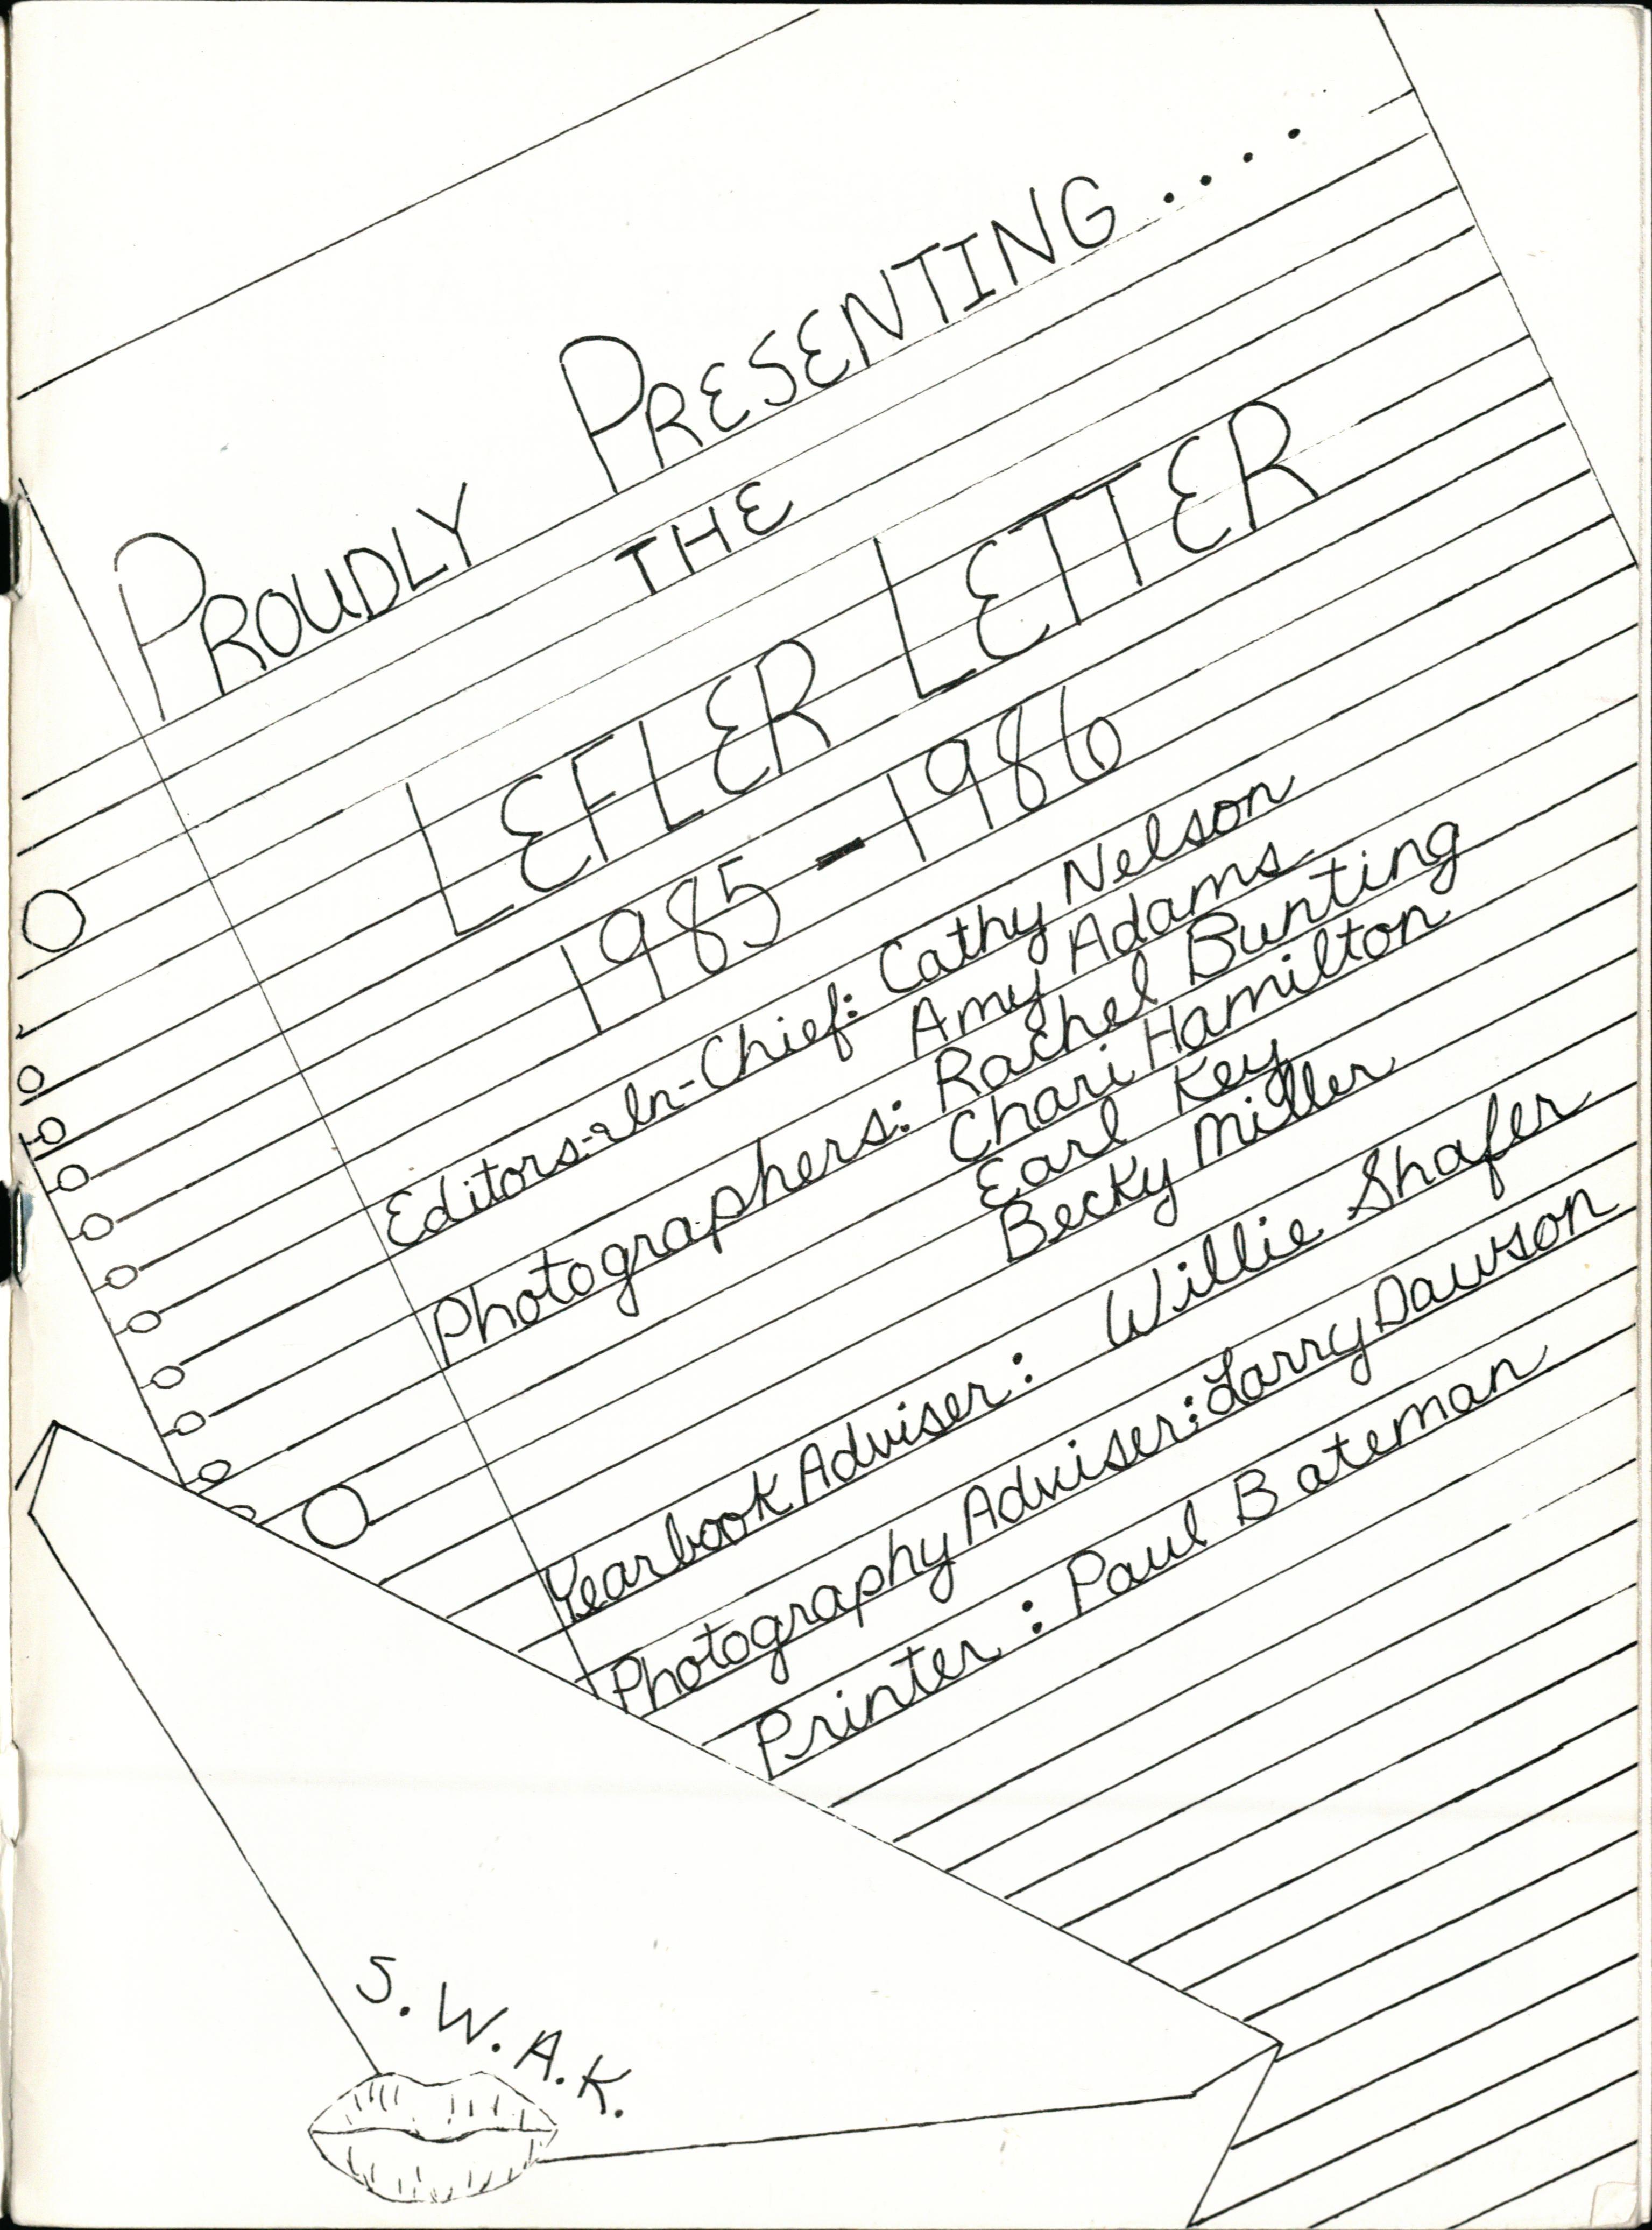 PROUDLY PRESENTING....
THE
LEFLER LETTER
1985-1986
Editors-In-Chief: Cathy Nelson
Amy Adams
Photographers: Rachel Bunting
Chari Hamilton
Earl Key
Becky Miller
Yearbook Adviser: Willie Shafer
Photography Adviser: Larry Dawson
Printer: Paul Bateman
S.W.A.K.